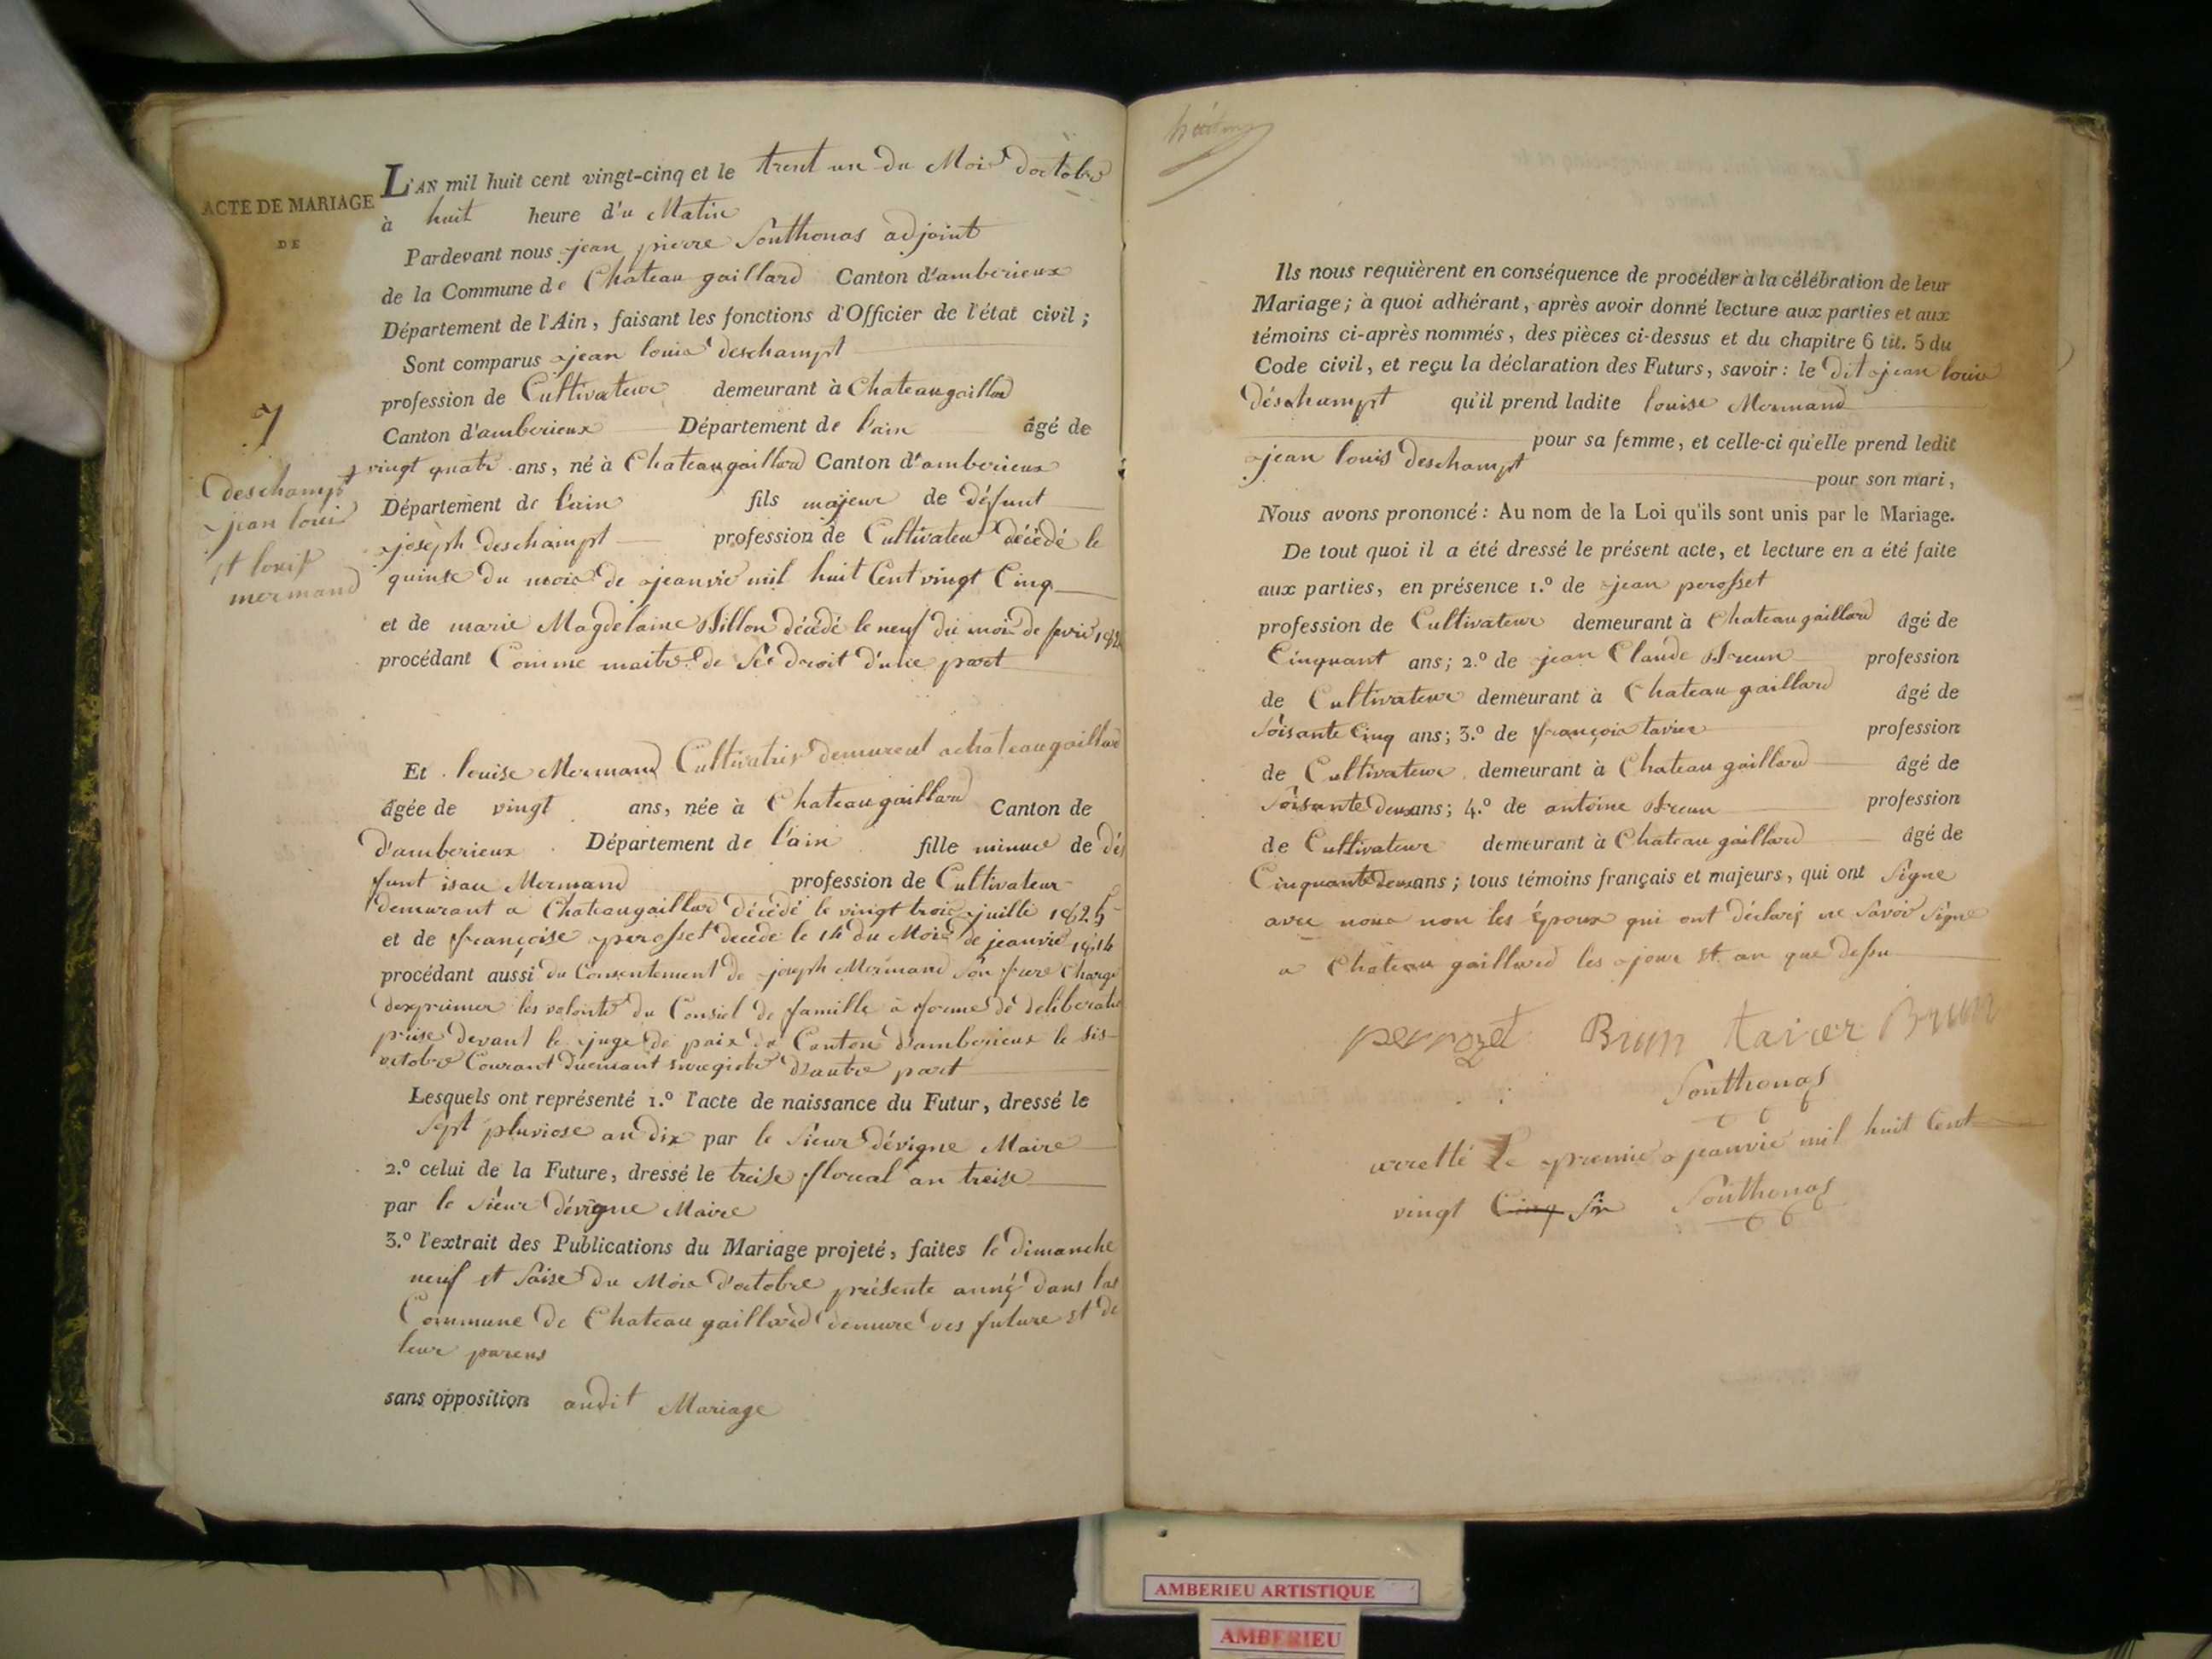 ACTE DE MARIAGE
DE
7
deschampt
jean louis
et louise
mermand
L'AN mil huit cent vingt-cinq et le trent un du Mois doctobre
à huit heure d'u Matin
Pardevant nous jean pierre Southonas adjoint
de la Commune de Chateau gaillard Canton d'amberieux
Département de l'Ain, faisant les fonctions d'Officier de l'état civil ;
Sont comparus jean louis deschampt
profession de Cultivateur demeurant à Chateaugaillard
Canton d'amberieux Département de l'ain âgé de
vingt quatre ans, né à Chateaugaillard Canton d'amberieux
Département de l'ain fils majeur de défunt
joséph deschampt profession de Cultivateur décédé le
quinse du mois de jeanvié mil huit Cent vingt Cinq
et de marie Magdelaine Billon décédé le neuf du mois de
procédant Comme maitre de Ses droit d'une part
Et louise Mermand Cultivatris demurent a chateaugaillard
âgée de vingt ans, née à Chateaugaillard Canton de
d'amberieux Département de l'ain fille mineur de dé
funt isau Mermand profession de Cultivateur
demurant a Chateaugaillard décédé le vingt trois juille 1825
et de françoise perosset decede le 14 du Mois de jeanvié 1814
procédant aussi du Consentement de joseph Mermand Son frere Chargé
dexprimer les volonté du Consiel de famille a forme de deliberation
prise devant le juge de paix du Canton d'amberieux le sis
octobre Courant duemant enregistré d'autre part
Lesquels ont représenté 1.º l'acte de naissance du Futur, dressé le
Sept pluviose an dix par le Sieur dévigne Maire
2.º celui de la Future, dressé le treise floreal an treise
par le Sieur dévigne Maire
3.º l'extrait des Publications du Mariage projeté, faites le dimanche
neuf et Saise du Mois d'octobre présente anné dans las
Commune de Chateau gaillard demure des future et de
leur parens
sans opposition audit Mariage
Ils nous requièrent en conséquence de procéder à la célébration de leur
Mariage ; à quoi adhérant, après avoir donné lecture aux parties et aux
témoins ci-après nommés, des pièces ci-dessus et du chapitre 6 tit. 5 du
Code civil, et reçu la déclaration des Futurs, savoir : le dit jean louis
déschampt qu'il prend ladite louise Mermand
pour sa femme, et celle-ci qu'elle prend ledit
jean louis deschampt
pour son mari,
Nous avons prononcé : Au nom de la Loi qu'ils sont unis par le Mariage.
De tout quoi il a été dressé le présent acte, et lecture en a été faite
aux parties, en présence 1.º de jean perosset
profession de Cultivateur demeurant à Chateaugaillard âgé de
Cinquant ans ; 2.º de jean Claude Breun profession
de Cultivateur demeurant à Chateau gaillard âgé de
Soisante Cinq ans ; 3.º de françois tavier profession
de Cultivateur demeurant à Chateau gaillard âgé de
Soisante deux ans ; 4.º de antoine Breun profession
de Cultivateur demeurant à Chateau gaillard âgé de
Cinquante deux ans ; tous témoins français et majeurs, qui ont Signe
avec nous non les Époux qui ont déclaré ne Savoir Signe
a Chateau gaillard les jour et an que dessu
perrozet Brun tavier Brun
Southonas
arretté Le premié jeanvié mil huit Cent
vingt Cinq Six Southonas
AMBERIEU ARTISTIQUE
AMBERIEU